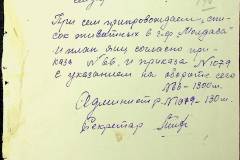 При сем препровождаем, спи-
сок животных в з-ф "Молдава"
и план яму согласно при-
каза №66. и приказа №1079
с указанием на обороте сего
№66-1300м.
Администр. №1079-130м.
Секретар